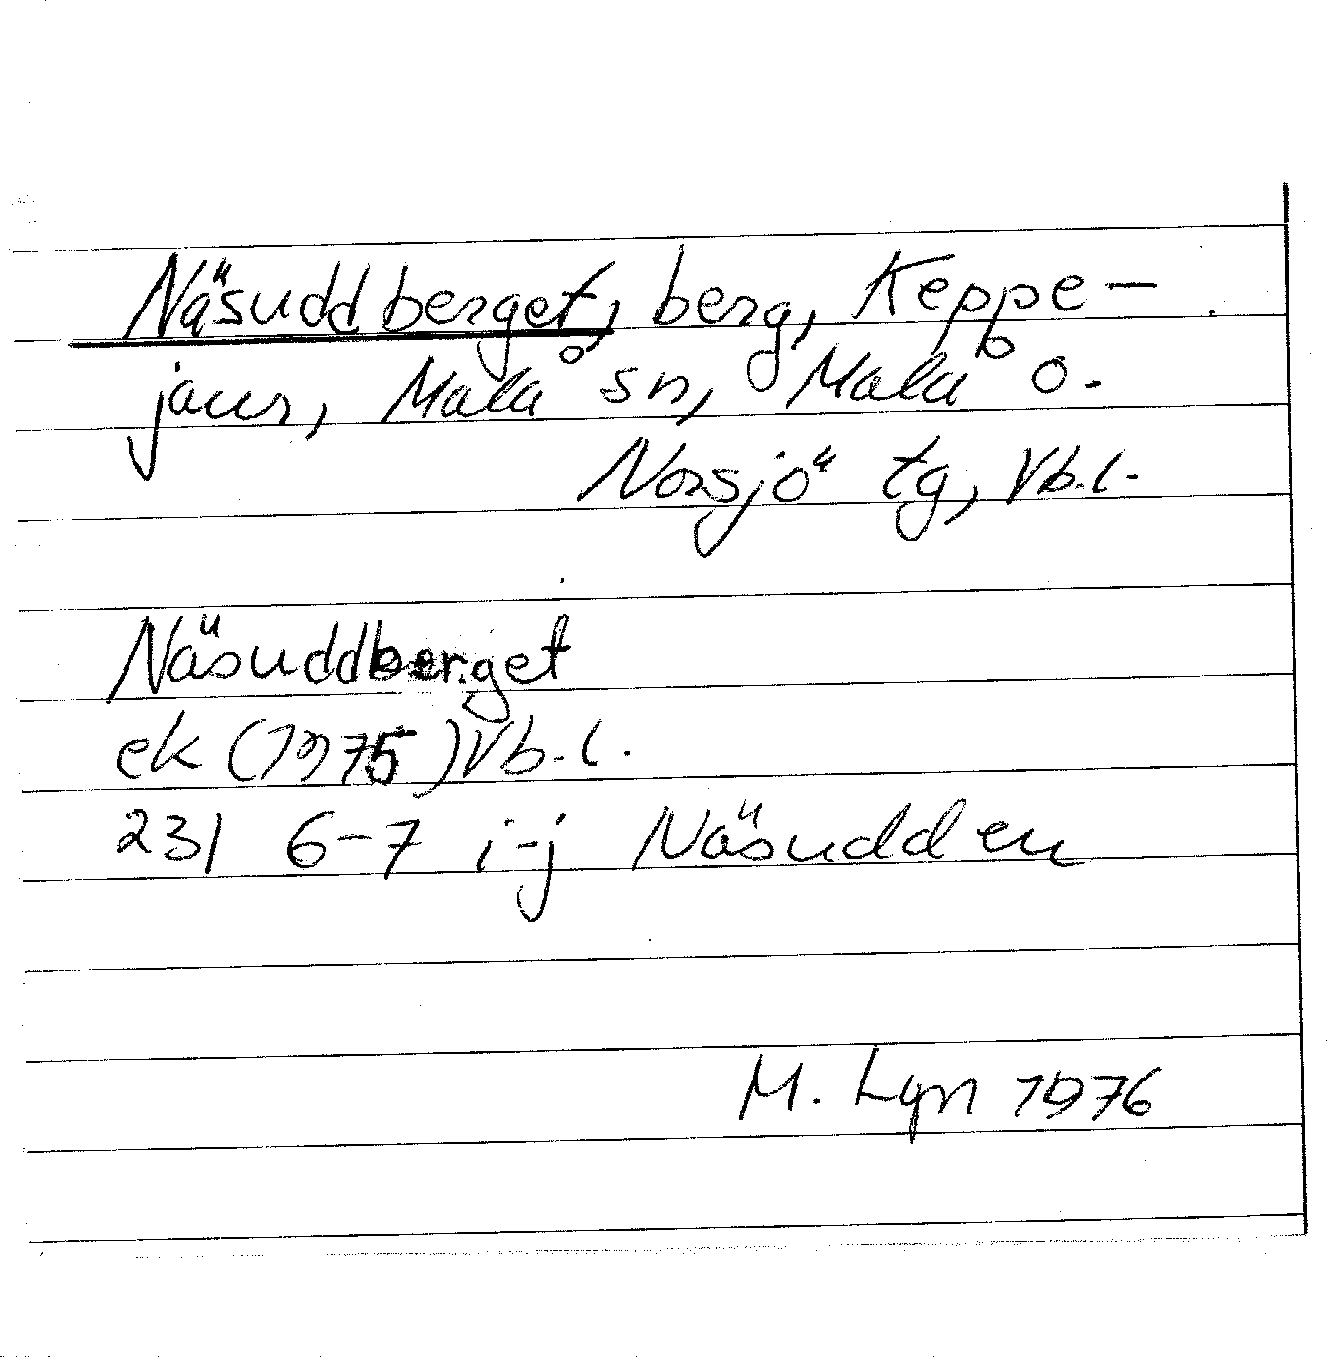 Näsuddberget, berg, Keppe-
jaur, Malå sn, Malå o.
Norsjö tg, Vb.l.
Näsuddberget
ek (1975) Vb.l.
23I 6-7 i-j Näsudden
M. Lyn 1976